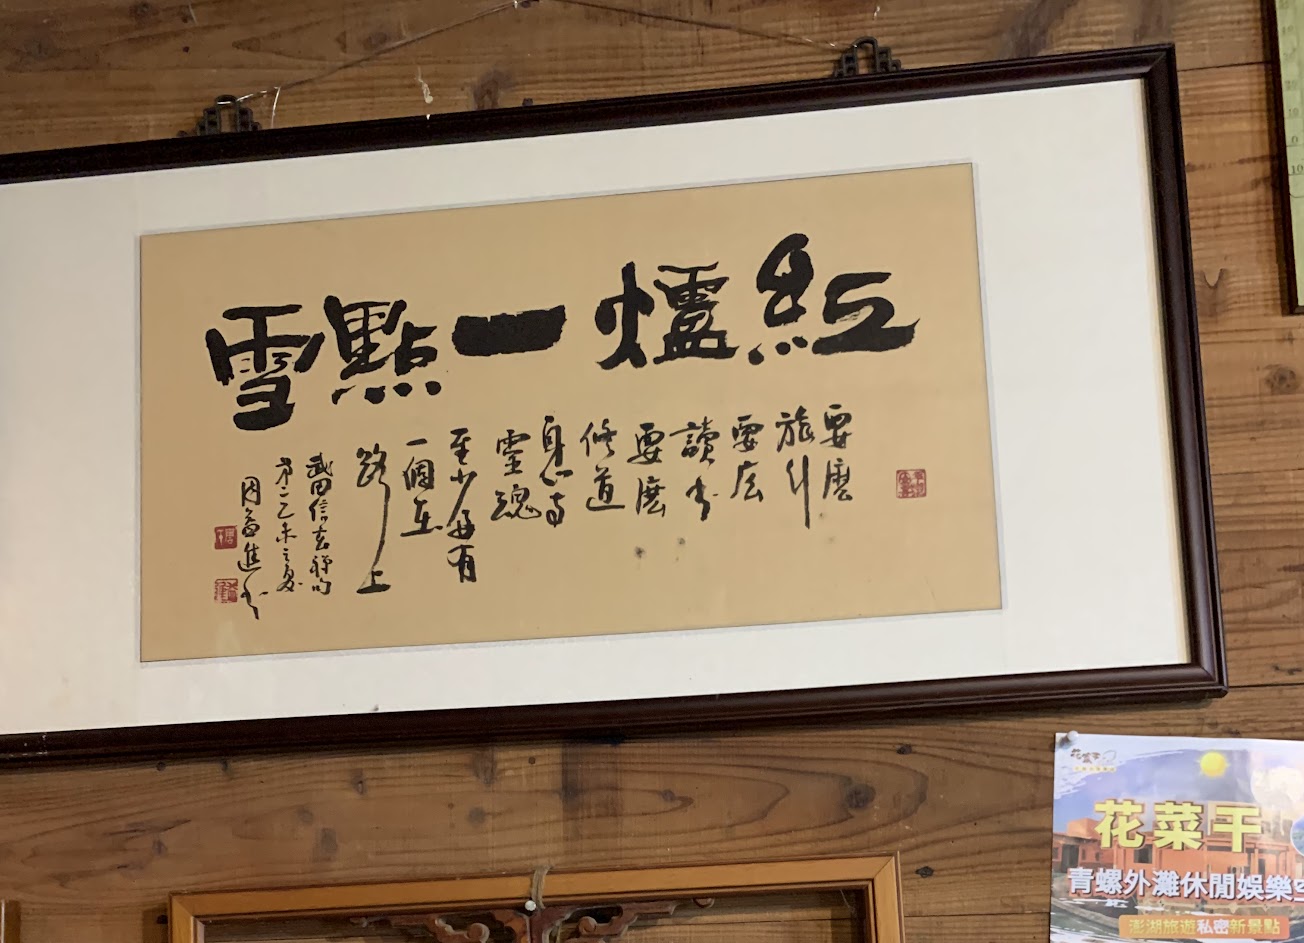 紅爐一點雪
要麼
旅行
要麼
讀书
要麼
修道
身心与
靈魂
至少有
一個在
路上
武田信玄禪句
乙未之夏
花菜干
青螺外灘休閒娛樂空
澎湖旅遊私密新景點